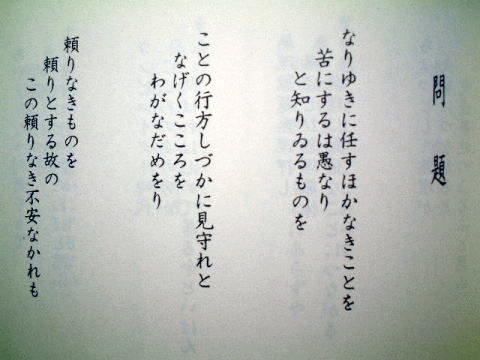 問題
なりゆきに任すほかなきことを
苦にするは愚なり
と知りゐるものを
ことの行方しづかに見守れと
なげくこころを
わがなだめをり
頼りなきものを
頼りとする故の
この頼りなき不安なかれも